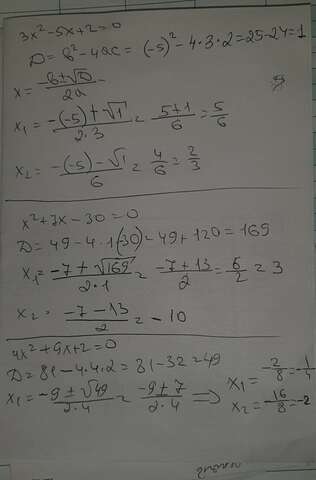 3x²-5x+2=0
D=b²-4ac=(-5)²-4·3·2=25-24=1
x=(b±√D)/2a
x₁=(-(-5)+√1)/(2·3)=(5+1)/6=5/6
x₂=(-(-5)-√1)/6=4/6=2/3
x²+7x-30=0
D=49-4·1(-30)=49+120=169
x₁=(-7+√169)/(2·1)=(-7+13)/2=6/2=3
x₂=(-7-13)/2=-10
4x²+9x+2=0
D=81-4·4·2=81-32=49
x₁=(-9±√49)/(2·4)=(-9±7)/(2·4)⇒
x₁=-2/8=-1/4
x₂=-16/8=-2